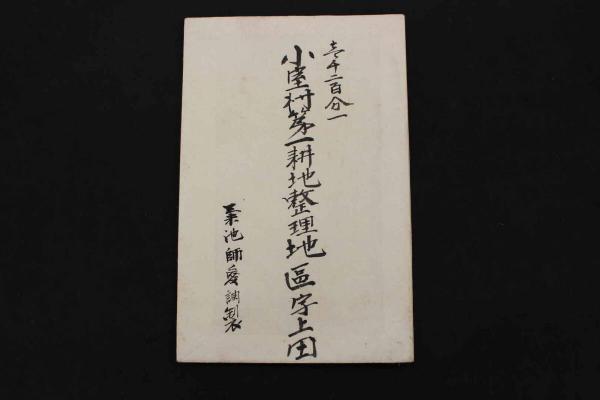 壱千二百分一
小室村第一耕地整理地區字上田
菊池師愛調製